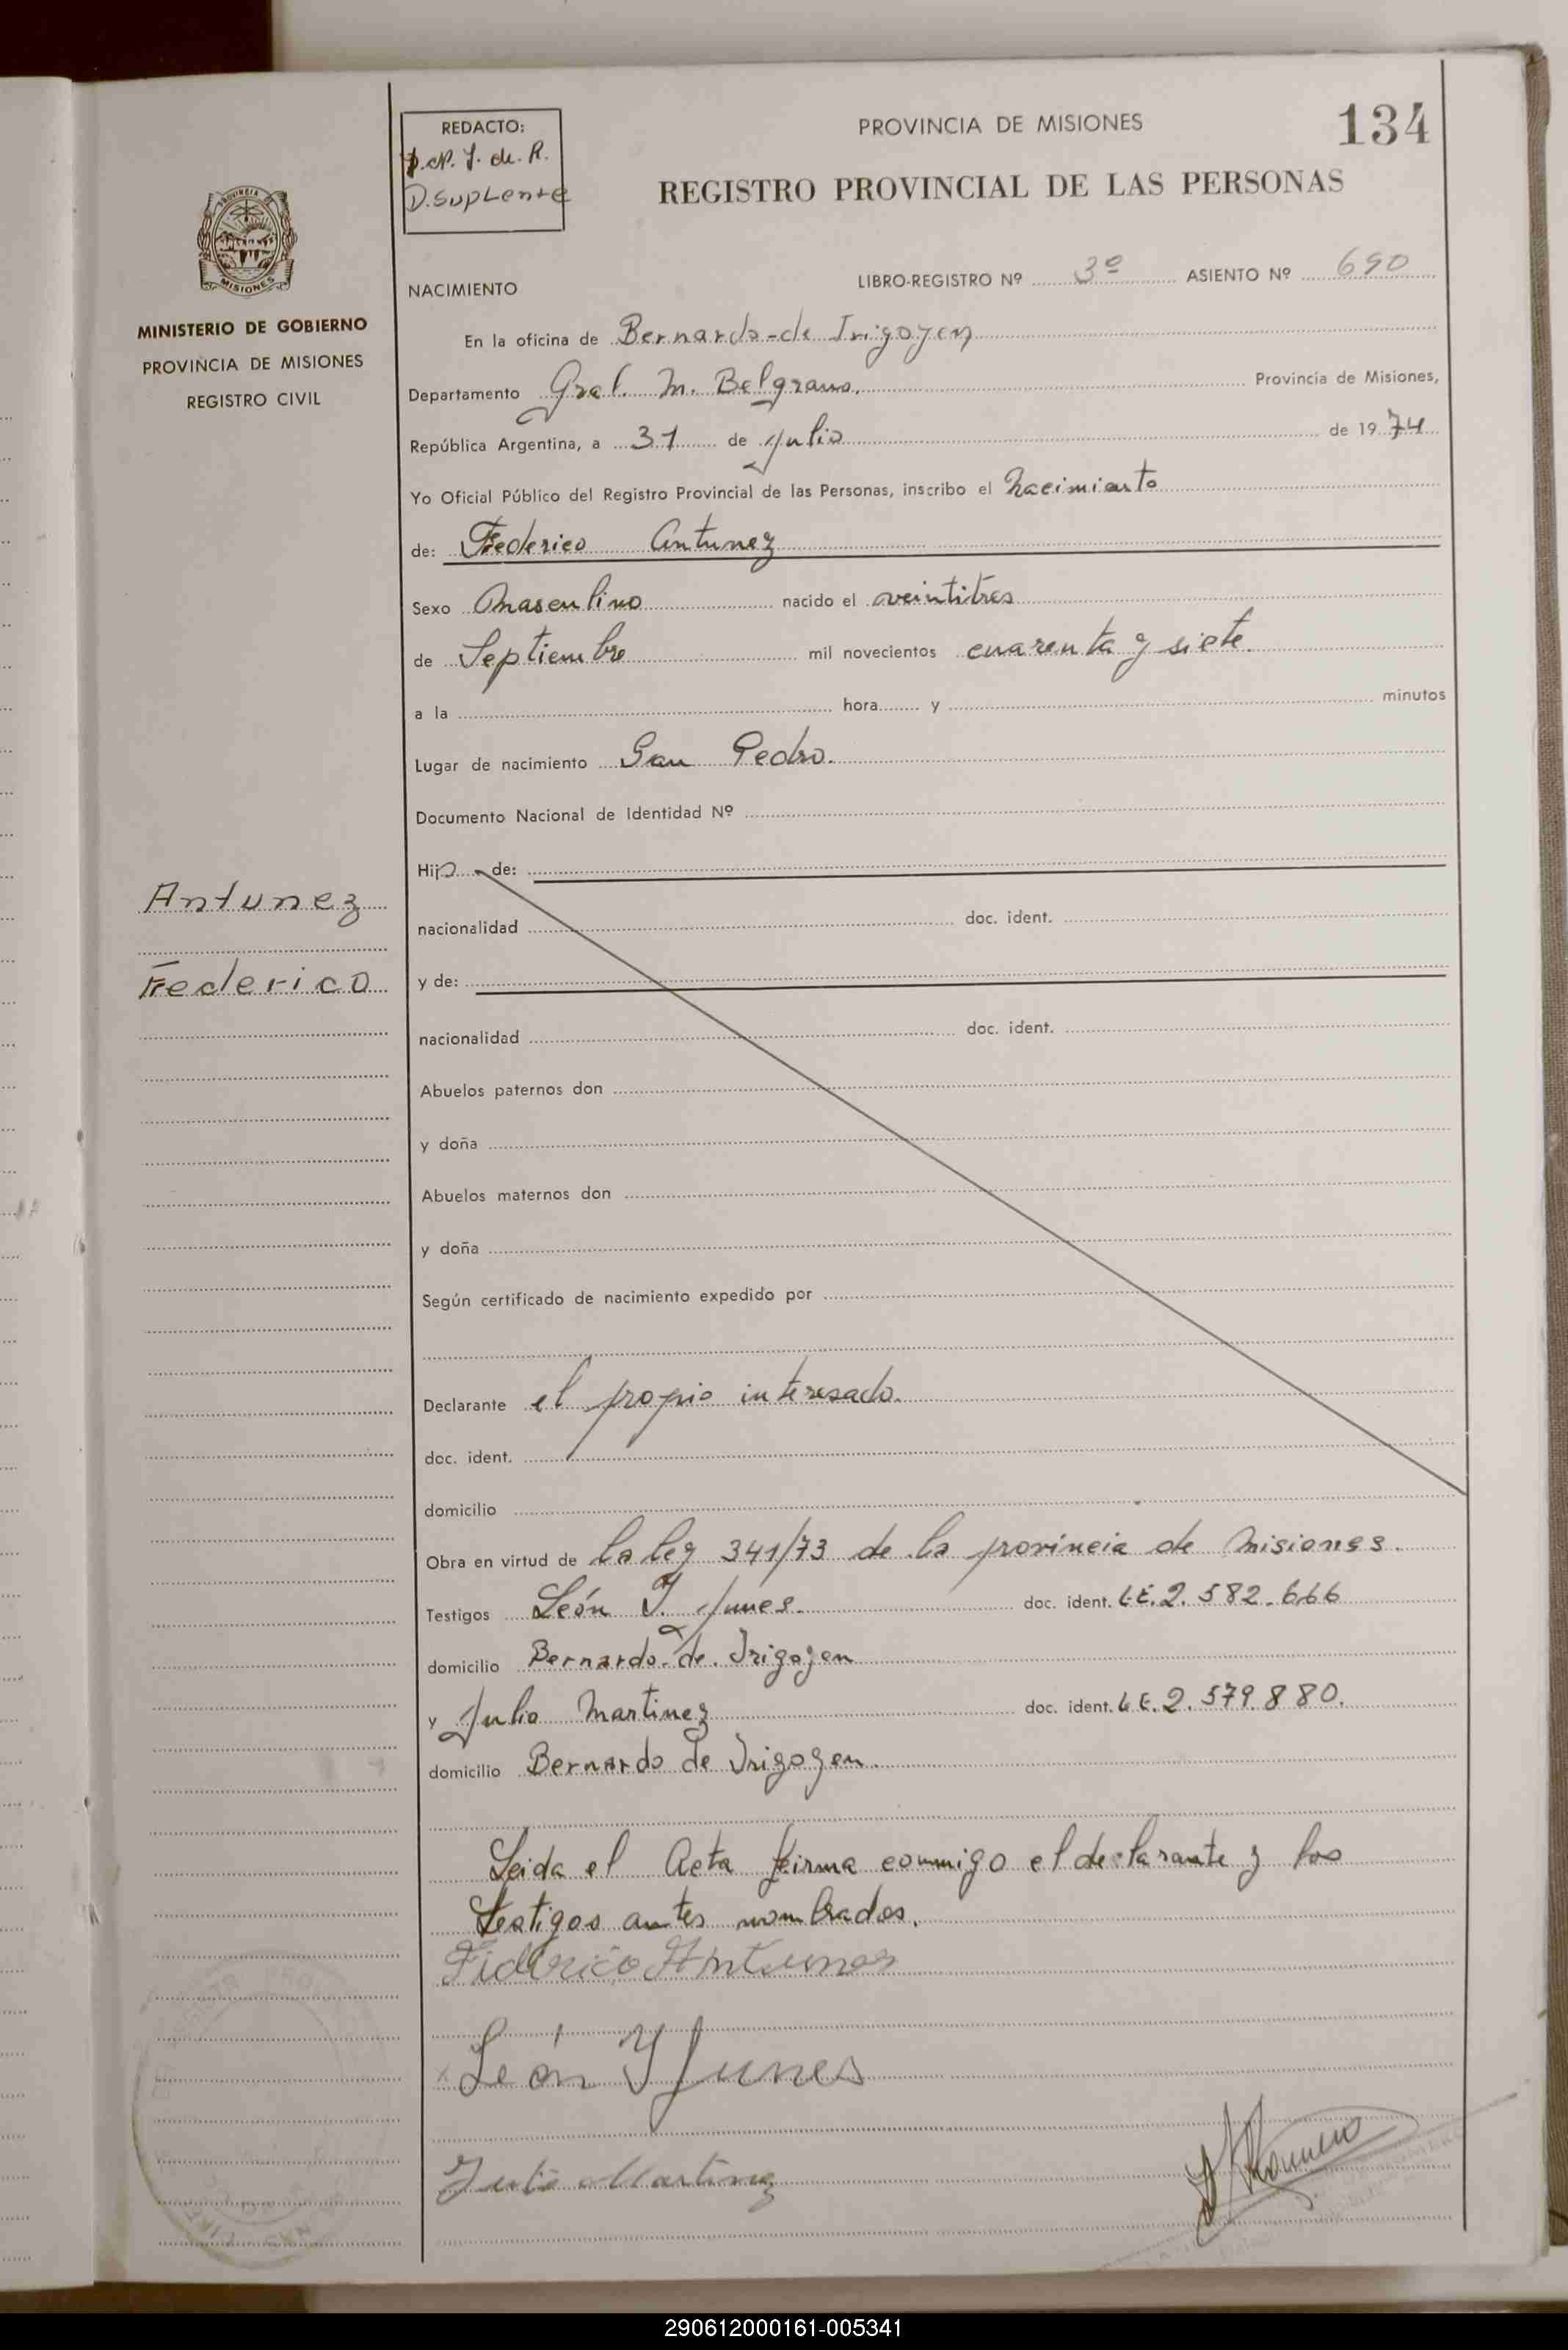 134
REDACTO:
D. Suplente
PROVINCIA DE MISIONES
REGISTRO PROVINCIAL DE LAS PERSONAS
MISIONES
MINISTERIO DE GOBIERNO
PROVINCIA DE MISIONES
REGISTRO CIVIL
NACIMIENTO
LIBRO-REGISTRO Nº 3º ASIENTO Nº 690
En la oficina de Bernardo de Irigoyen
Departamento Gral. M. Belgrano. Provincia de Misiones,
República Argentina, a 31 de Julio de 1974
Yo Oficial Público del Registro Provincial de las Personas, inscribo el Nacimiento
de: Federico Antunez
Sexo Masculino nacido el veintitres
de Septiembre mil novecientos cuarenta y siete.
a la hora y minutos
Lugar de nacimiento San Pedro.
Documento Nacional de Identidad Nº
Hijo de:
Antunez
nacionalidad doc. ident.
Federico
y de:
nacionalidad doc. ident.
Abuelos paternos don
y doña
Abuelos maternos don
y doña
Según certificado de nacimiento expedido por
Declarante el propio interesado.
doc. ident.
domicilio
Obra en virtud de la ley 341/73 de la provincia de Misiones.
Testigos León Y. Junes. doc. ident. L.E. 2.582.666
domicilio Bernardo de Irigoyen
y Julio Martinez doc. ident. L.E. 2.579.880.
domicilio Bernardo de Irigoyen.
Leida el Acta firma conmigo el declarante y los
testigos antes nombrados.
Fiderico Antunes
León Y Junes
Julio Martinez
Romero
290612000161-005341